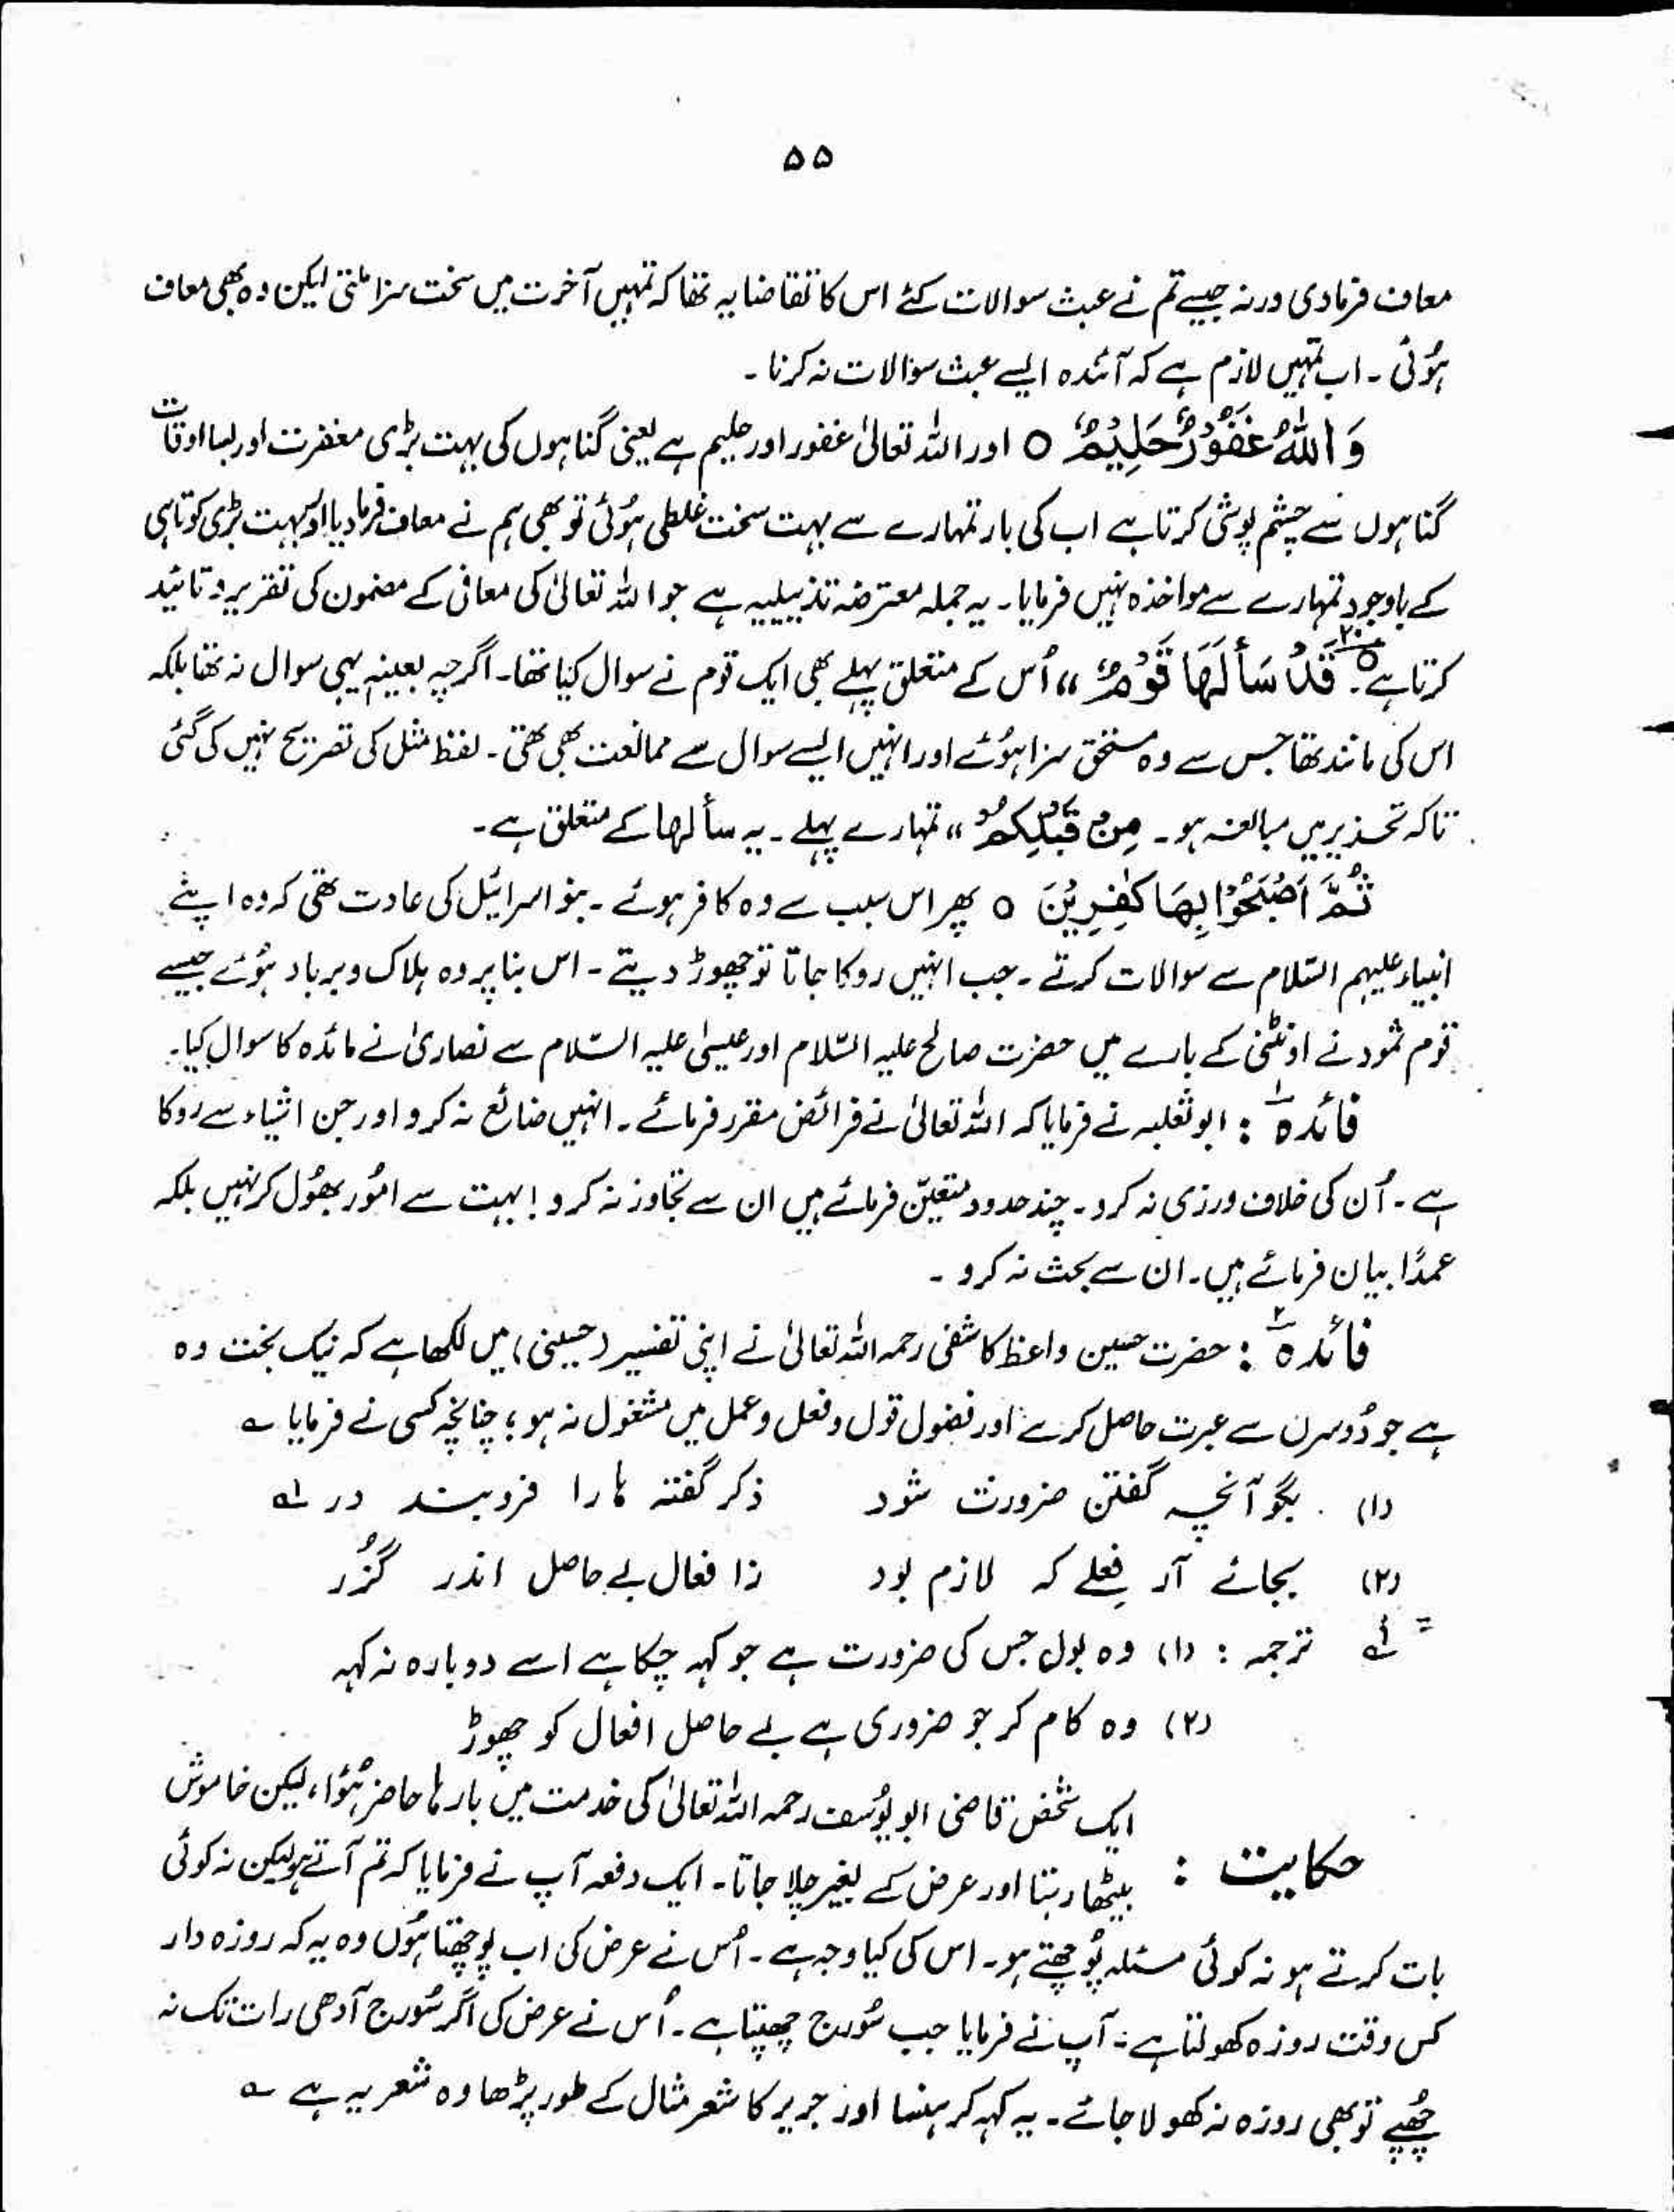 ۵۵
معاف فرمادی ورنہ جیسے تم نے عبث سوالات کئے اس کا تقاضا یہ تھا کہ تمہیں آخرت میں سخت سزا ملتی لیکن وہ بھی معاف
ہُوئی ۔ اب تمہیں لازم ہے کہ آئندہ ایسے عبث سوالات نہ کرنا ۔
وَ اللّٰہُ غَفُوْرٌ حَلِیْمٌ ○ اور اللہ تعالیٰ غفور اور حلیم ہے یعنی گناہوں کی بہت بڑی مغفرت اور بسا اوقات
گناہوں سے چشم پوشی کرتا ہے اب کی بار تمہارے سے بہت سخت غلطی ہُوئی تو بھی ہم نے معاف فرما دیا اور بہت بڑی کوتاہی
کے باوجود تمہارے سے مواخذہ نہیں فرمایا ۔ یہ جملہ معترضہ تذییلیہ ہے جو اللہ تعالیٰ کی معافی کے مضمون کی تقریر و تائید
کرتا ہے ۔ قَدْ سَأَلَھَا قَوْمٌ ،، اُس کے متعلق پہلے بھی ایک قوم نے سوال کیا تھا ۔ اگرچہ بعینہٖ یہی سوال نہ تھا بلکہ
اس کی مانند تھا جس سے وہ مستحق سزا ہُوئے اور انہیں ایسے سوال سے ممانعت بھی تھی ۔ لفظ مثل کی تصریح نہیں کی گئی
تاکہ تحذیر میں مبالغہ ہو ۔ مِنْ قَبْلِکُمْ ،، تمہارے پہلے ۔ یہ سألھا کے متعلق ہے ۔
ثُمَّ اَصْبَحُوْا بِھَا کٰفِرِیْنَ ○ پھر اس سبب سے وہ کافر ہوئے ۔ بنو اسرائیل کی عادت تھی کہ وہ اپنے
انبیاء علیہم السّلام سے سوالات کرتے ۔ جب انہیں روکا جاتا تو چھوڑ دیتے ۔ اس بنا پر وہ ہلاک و برباد ہُوئے جیسے
قوم ثمود نے اونٹنی کے بارے میں حضرت صالح علیہ السّلام اور عیسیٰ علیہ السّلام سے نصاریٰ نے مائدہ کا سوال کیا ۔
فائدہ ۱ : ابو ثعلبہ نے فرمایا کہ اللہ تعالیٰ نے فرائض مقرر فرمائے ۔ انہیں ضائع نہ کرو اور جن اشیاء سے روکا
ہے ۔ اُن کی خلاف ورزی نہ کرو ۔ چند حدود متعیّن فرمائے ہیں ان سے تجاوز نہ کرو ! بہت سے امُور بھُول کر نہیں بلکہ
عمدًا بیان فرمائے ہیں ۔ ان سے بحث نہ کرو ۔
فائدہ ۲ : حضرت حسین واعظ کاشفی رحمہ اللہ تعالیٰ نے اپنی تفسیر (حسینی) میں لکھا ہے کہ نیک بخت وہ
ہے جو دُوسرں سے عبرت حاصل کرے اور فضول قول و فعل و عمل میں مشغول نہ ہو ؛ چنانچہ کسی نے فرمایا ؎
(۱) بگو آنچہ گفتن ضرورت شود ذکر گفتہ ہا را فروبند در لہ
(۲) بجائے آر فِعلے کہ لازم بود زا فعال بے حاصل اندر گُزر
= لہ ترجمہ : (۱) وہ بول جس کی ضرورت ہے جو کہہ چکا ہے اسے دوبارہ نہ کہہ
(۲) وہ کام کر جو ضروری ہے بے حاصل افعال کو چھوڑ
ایک شخص قاضی ابو یوُسف رحمہ اللہ تعالیٰ کی خدمت میں بارہا حاضر ہُوا، لیکن خاموش
حکایت : بیٹھا رہتا اور عرض کے بغیر چلا جاتا ۔ ایک دفعہ آپ نے فرمایا کہ تم آتے ہو لیکن نہ کوئی
بات کرتے ہو نہ کوئی مسئلہ پُوچھتے ہو ۔ اس کی کیا وجہ ہے ۔ اُس نے عرض کی اب پوچھتا ہُوں وہ یہ کہ روزہ دار
کس وقت روزہ کھولتا ہے ۔ آپ نے فرمایا جب سُورج چھپتا ہے ۔ اُس نے عرض کی اگر سُورج آدھی رات تک نہ
چھُپے تو بھی روزہ نہ کھولا جائے ۔ یہ کہہ کر ہنسا اور جریر کا شعر مثال کے طور پڑھا وہ شعر یہ ہے ؎